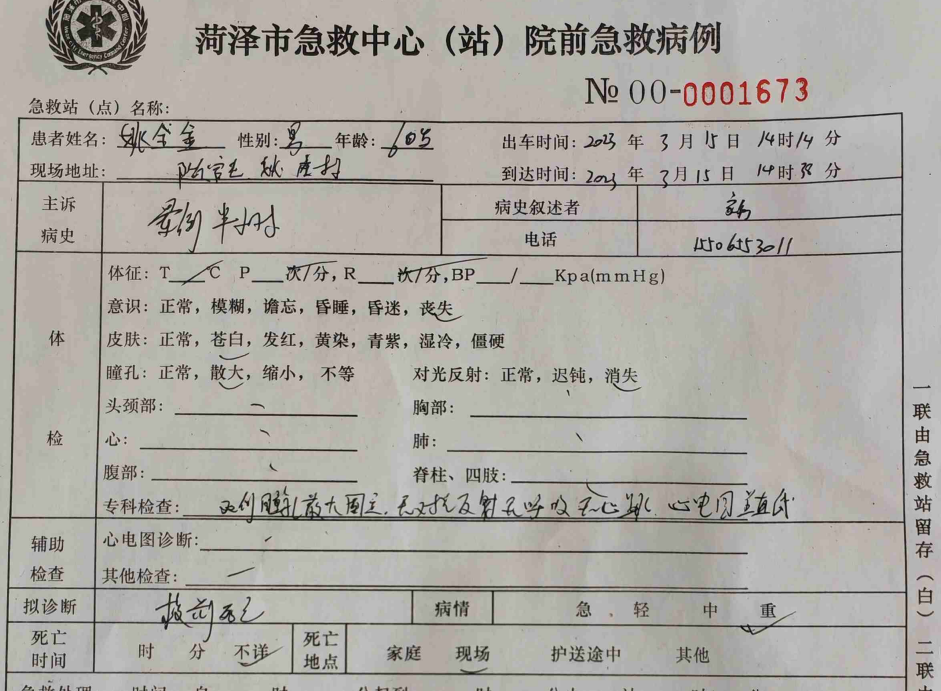 菏泽市急救中心（站）院前急救病例
№ 00-0001673
急救站（点）名称：
患者姓名：姚 金 性别：男 年龄：60岁 出车时间：2023 年 3 月 15 日 14时14 分
现场地址： 到达时间：2023 年 3 月 15 日 14时38 分
主诉 病史 晕倒半小时 病史叙述者 家属
电话 1506553011
体征：T C P 次/分，R 次/分，BP / Kpa(mmHg)
意识：正常，模糊，谵忘，昏睡，昏迷，丧失
体 皮肤：正常，苍白，发红，黄染，青紫，湿冷，僵硬
瞳孔：正常，散大，缩小，不等 对光反射：正常，迟钝，消失
头颈部： 胸部：
检 心： 肺：
腹部： 脊柱、四肢：
专科检查：双侧瞳孔散大固定，无对光反射无呼吸无心跳，心电图呈直线
辅助 心电图诊断：
检查 其他检查：
拟诊断 院前死亡 病情 急 轻 中 重
死亡时间 时 分 不详 死亡地点 家庭 现场 护送途中 其他
一联由急救站留存（白）二联由